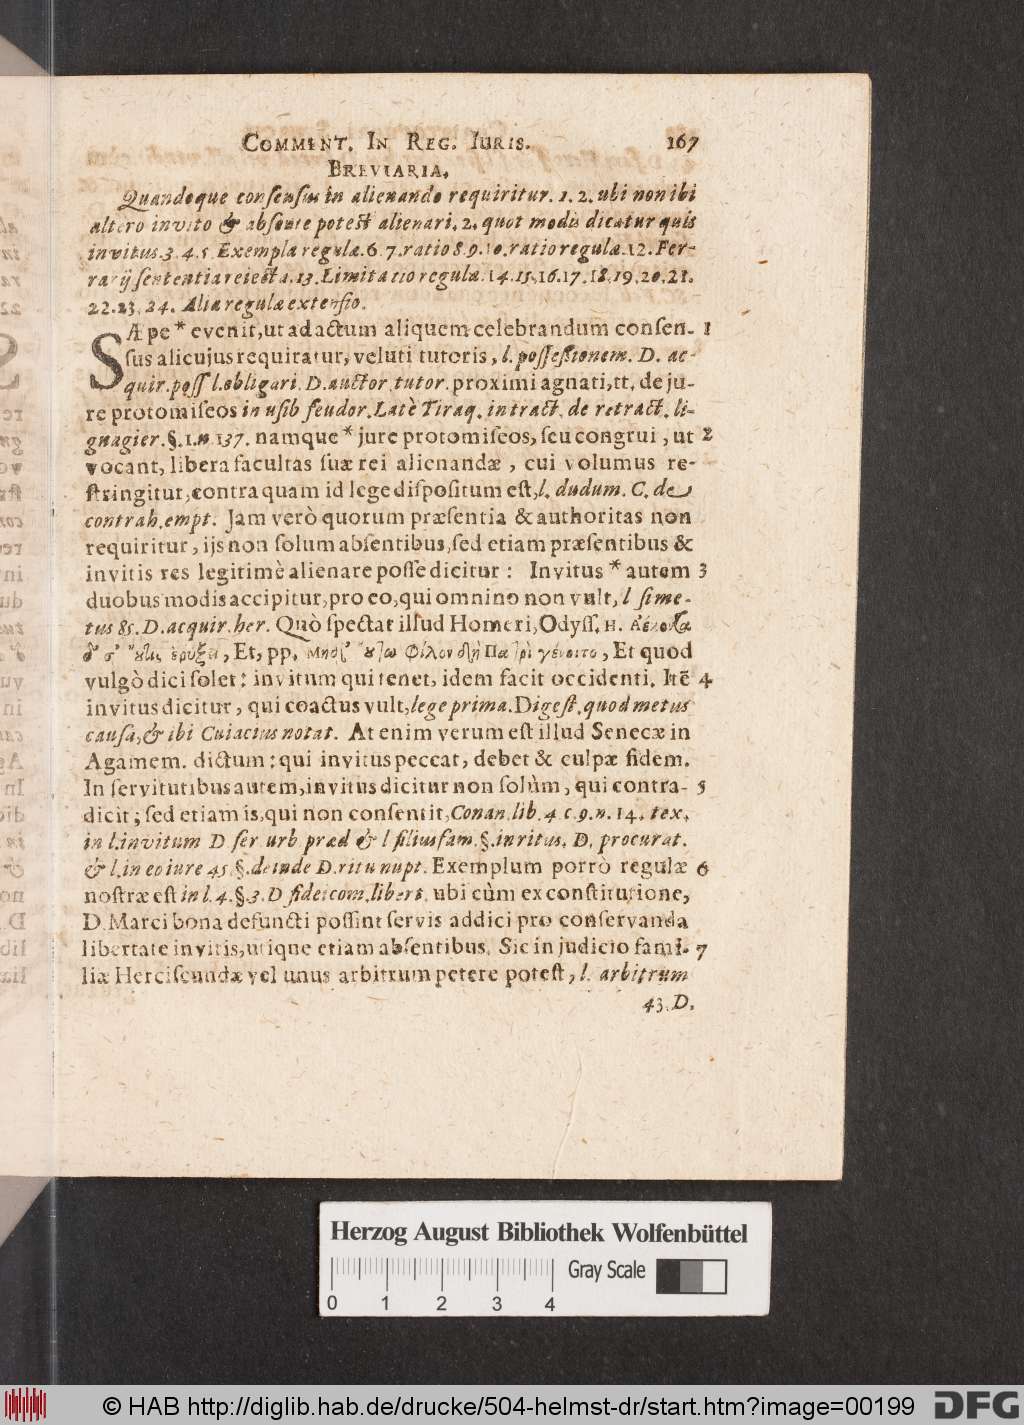 COMMENT. IN REG. IURIS. 167
BREVIARIA.
Quandoque consensus in alienando requiritur. 1. 2. ubi non ibi
altero invito & absente potest alienari. 2. quot modis dicatur quis
invitus. 3. 4. 5. Exempla regulæ. 6. 7. ratio 8. 9. 10. ratio regulæ. 12. Fer-
rarij sententia reiecta. 13. Limitatio regulæ. 14. 15. 16. 17. 18. 19. 20. 21.
22. 23. 24. Alia regulæ extensio.
SÆpe * evenit, ut ad actum aliquem celebrandum consen- 1
sus alicujus requiratur, veluti tutoris, l. possessionem. D. ac-
quir. poss l. obligari. D. auctor. tutor. proximi agnati, tt. de ju-
re protomiseos in usib feudor. Latè Tiraq. in tract. de retract. li-
gnagier. §. 1. n. 137. namque * jure protomiseos, seu congrui, ut 2
vocant, libera facultas suæ rei alienandæ, cui volumus re-
stringitur, contra quam id lege dispositum est, l. dudum. C. de
contrah. empt. Jam verò quorum præsentia & authoritas non
requiritur, ijs non solum absentibus, sed etiam præsentibus &
invitis res legitimè alienare posse dicitur: Invitus * autem 3
duobus modis accipitur, pro eo, qui omnino non vult, l sime-
tus 85. D. acquir. her. Quò spectat illud Homeri, Odyss. H.
Et, pp. Et quod
vulgò dici solet: invitum qui tenet, idem facit occidenti. Itẽ 4
invitus dicitur, qui coactus vult, lege prima. Digest. quod metus
causa, & ibi Cuiacius notat. At enim verum est illud Senecæ in
Agamem. dictum: qui invitus peccat, debet & culpæ fidem.
In servitutibus autem, invitus dicitur non solùm, qui contra- 5
dicit; sed etiam is, qui non consentit, Conan. lib. 4 c. 9. n. 14. tex.
in l. invitum D ser urb præd & l filiusfam. §. invitus. D. procurat.
& l. in eo iure 45. §. deinde D. ritu nupt. Exemplum porrò regulæ 6
nostræ est in l. 4. §. 3. D fideicom. libert. ubi cùm ex constitutione,
D. Marci bona defuncti possint servis addici pro conservanda
libertate invitis, utique etiam absentibus. Sic in judicio fami- 7
liæ Herciscundæ vel unus arbitrum petere potest, l. arbitrum
43. D.
Herzog August Bibliothek Wolfenbüttel
Gray Scale
0 1 2 3 4
© HAB http://diglib.hab.de/drucke/504-helmst-dr/start.htm?image=00199
DFG